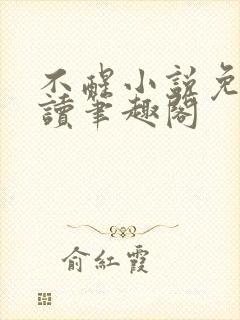 不醒小說免
讀筆趣閣
俞紅霞